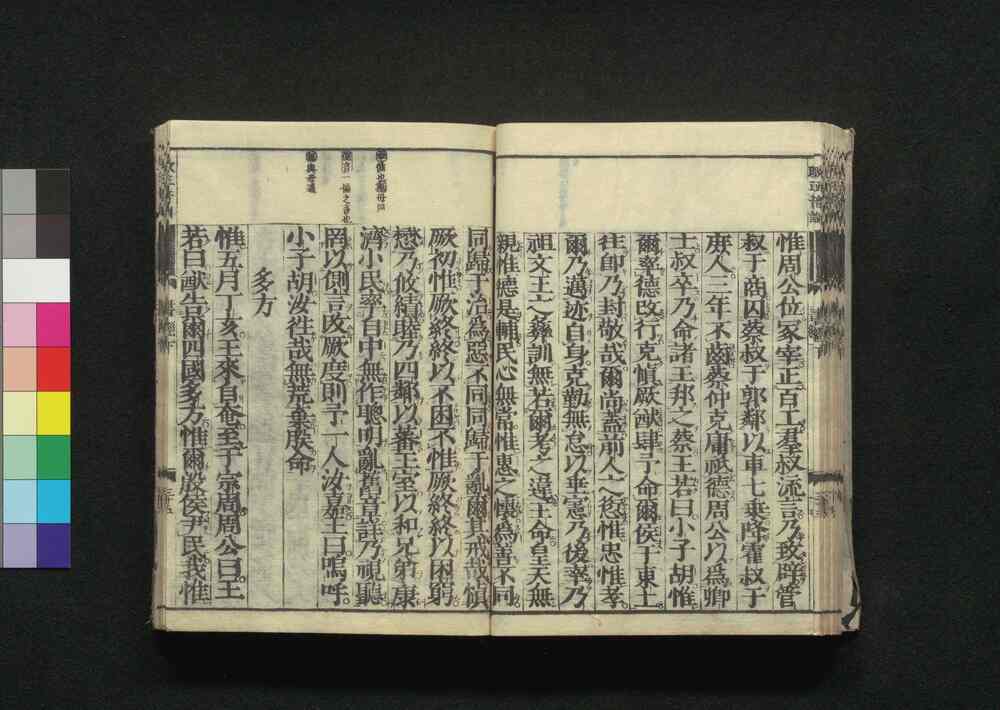 惟周公位冢宰正百工羣叔流言乃致辟管
叔于商囚蔡叔于郭鄰以車七乗降霍叔于
庶人三年不齒蔡仲克庸祗德周公以爲卿
士叔卒乃命諸王邦之蔡王若曰小子胡惟
爾率德改行克愼厥猷肆予命爾侯于東土
往即乃封敬哉爾尚蓋前人之愆惟忠惟孝
爾乃邁迹自身克勤無怠以垂憲乃後率乃
祖文王之彝訓無若爾考之違王命皇天無
親惟德是輔民心無常惟惠之懷為善不同
同歸于治為惡不同同歸于亂爾其戒哉愼
厥初惟厥終終以不困不惟厥終終以困窮
懋乃攸績睦乃四鄰以蕃王室以和兄弟康
濟小民率自中無作聰明亂舊章詳乃視聽
罔以側言改厥度則予一人汝嘉王曰嗚呼
小子胡汝徃哉無荒棄朕命
多方
惟五月丁亥王來自奄至于宗周周公曰王
若曰猷告爾四國多方惟爾殷侯尹民我惟